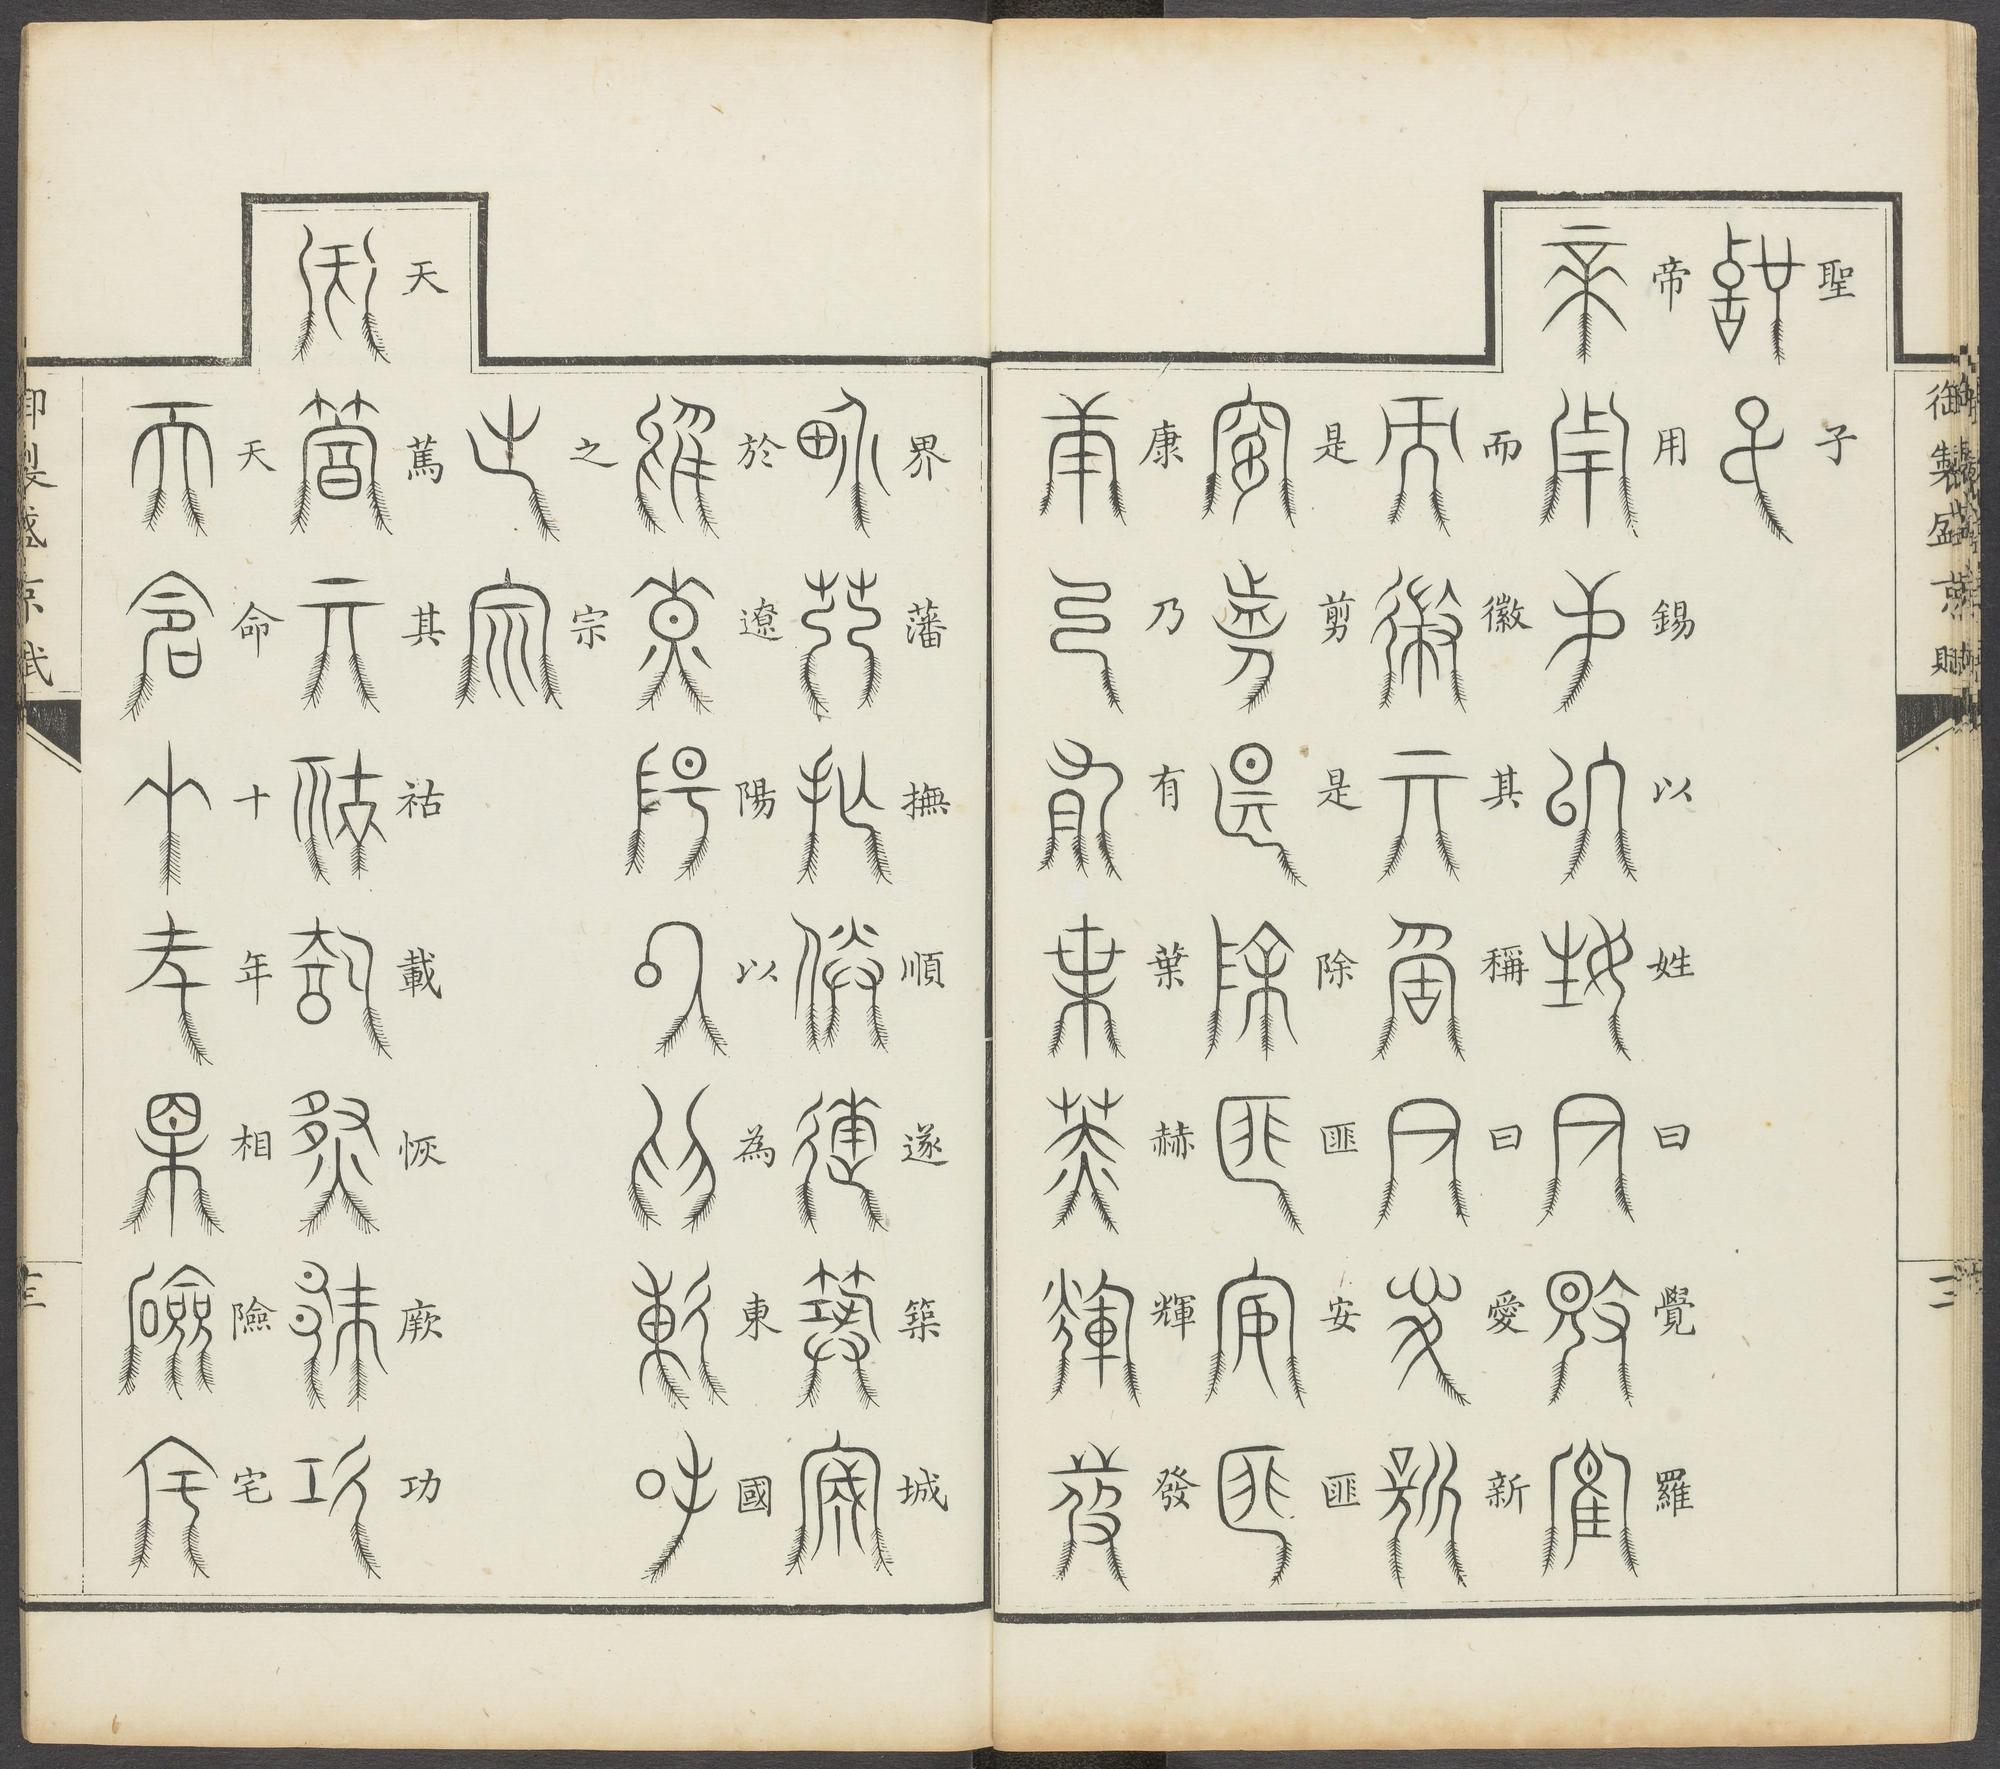 御製盛京賦
三
聖子
帝用錫以姓曰覺羅
而徽其稱曰愛新
是剪是除匪安匪
康乃有葉赫輝發
界藩撫順遂築城
於遼陽以為東國
之宗
天篤其祜載恢厥功
天命十年相險宅
御製盛京賦